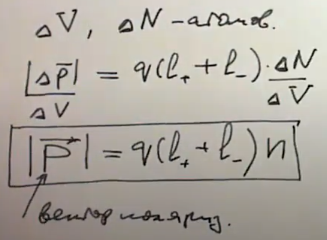 ΔV, ΔN - атомов.
|Δp̄| / ΔV = q(l₊ + l₋) · ΔN / ΔV
|P⃗| = q(l₊ + l₋) n
вектор поляриз.